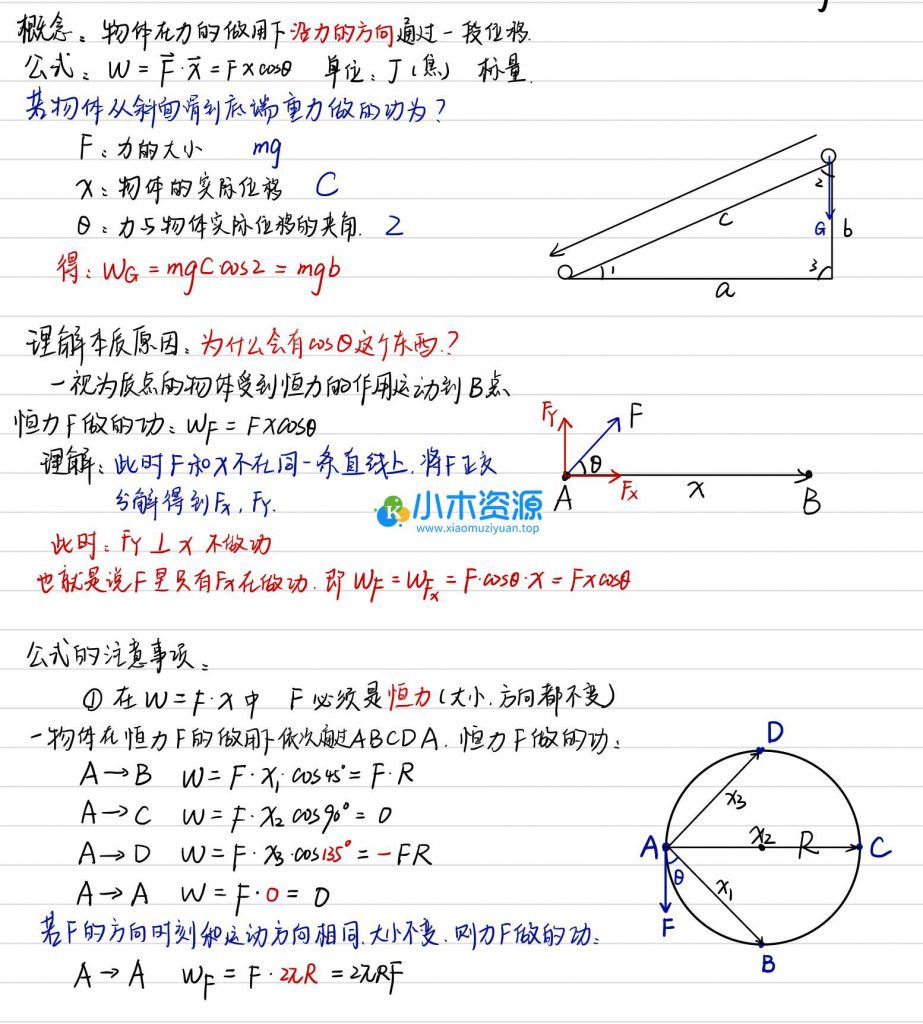 概念：物体在力的做用下沿力的方向通过一段位移.
公式：W = F·x = Fxcosθ 单位：J（焦） 标量.
若物体从斜面滑到底端重力做的功为？
F：力的大小 mg
x：物体的实际位移 C
θ：力与物体实际位移的夹角. 2
得：WG = mgCcos2 = mgb
c
2
G
b
1
3
a
理解本质原因：为什么会有cosθ这个东西？
一视为质点的物体受到恒力的作用运动到B点
恒力F做的功：WF = FXcosθ
理解：此时F和X不在同一条直线上，将F正交
分解得到Fx，FY.
FY
F
θ
A
Fx
x
B
小木资源
www.xiaomuziyuan.top
此时：FY⊥x 不做功
也就是说F里只有Fx在做功. 即 WF = WFx = F·cosθ·x = Fxcosθ
公式的注意事项：
① 在 W=F·x 中 F必须是恒力（大小、方向都不变）
一物体在恒力F的做用下依次通过ABCDA. 恒力F做的功：
A→B W = F·x1·cos45° = F·R
A→C W = F·x2 cos90° = 0
A→D W = F·x3·cos135° = -FR
A→A W = F·0 = 0
若F的方向时刻和运动方向相同，大小不变，则力F做的功：
A→A WF = F·2πR = 2πRF
D
x3
A
x2
R
C
θ
x1
F
B